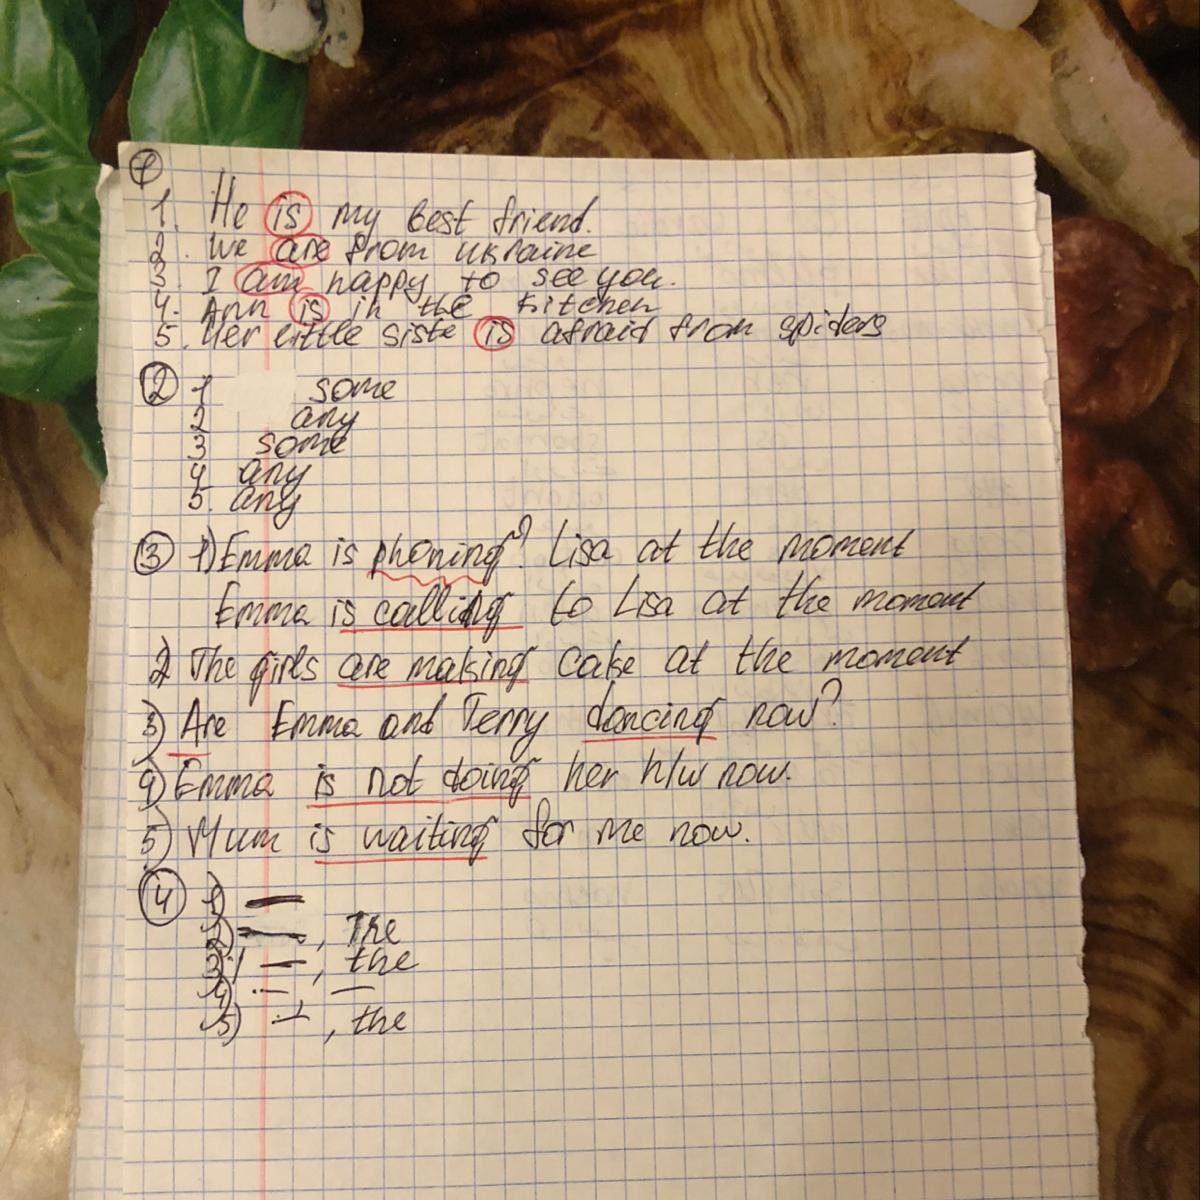 1
1. He is my best friend.
2. We are from Ukraine
3. I am happy to see you.
4. Ann is in the kitchen
5. Her little siste is afraid from spiders
2 1 some
2 any
3 some
4 any
5. any
3 1) Emma is phoning? Lisa at the moment
Emma is calling to Lisa at the moment
2) The girls are making cake at the moment
3) Are Emma and Terry dancing now?
4) Emma is not doing her h/w now.
5) Mum is waiting for me now.
4 1) —
2) —, The
3) —, the
4) —, —
5) —, the